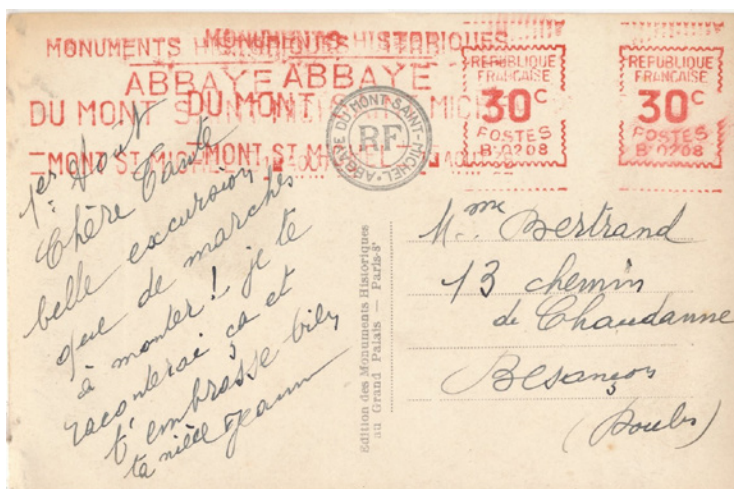 MONUMENTS HISTORIQUES
MONUMENTS HISTORIQUES
ABBAYE ABBAYE
DU MONT SAINT MICHEL
DU MONT SAINT MICHEL
MONT ST MICHEL
MONT ST MICHEL AOUT
REPUBLIQUE
FRANCAISE
30c
POSTES
B.0208
REPUBLIQUE
FRANCAISE
30c
POSTES
B.0208
ABBAYE DU MONT-SAINT-MICHEL
RF
1er Août
Chère Tante
belle excursion
que de marches
à monter! je te
raconterai ça et
t'embrasse bien
ta nièce Jeanne
Edition des Monuments Historiques
au Grand Palais — Paris-8e
Mme Bertrand
13 chemin
de Chaudanne
Besançon
(Doubs)